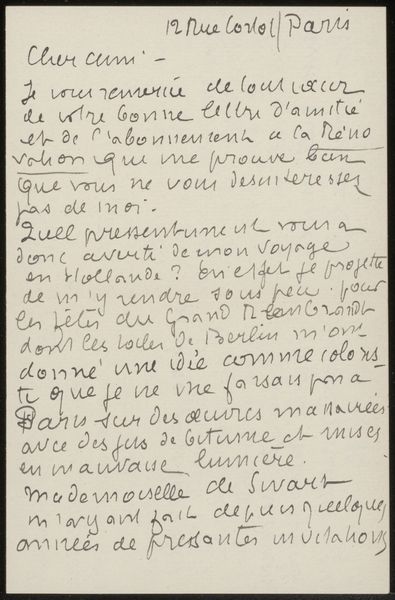 12 Rue Cortot / Paris
Cher ami -
Je vous remercie de tout cœur
de votre bonne lettre d'amitié
et de l'abonnement a la Réno
vation que me prouve bien
que vous ne vous desinteressez
pas de moi.
Quell pressentiment vous a
donc averti de mon voyage
en Hollande? En effet je projette
de m'y rendre sous peu pour
les fêtes du Grand Rembrandt
dont les toiles de Berlin m'ont
donné une idée comme coloris
te que je ne me faisais pas a
Paris sur des œuvres
avec des jus de bitume et mises
en mauvaise lumière.
Mademoiselle de Swart
m'ayant fait depuis quelques
années de pressantes invitations